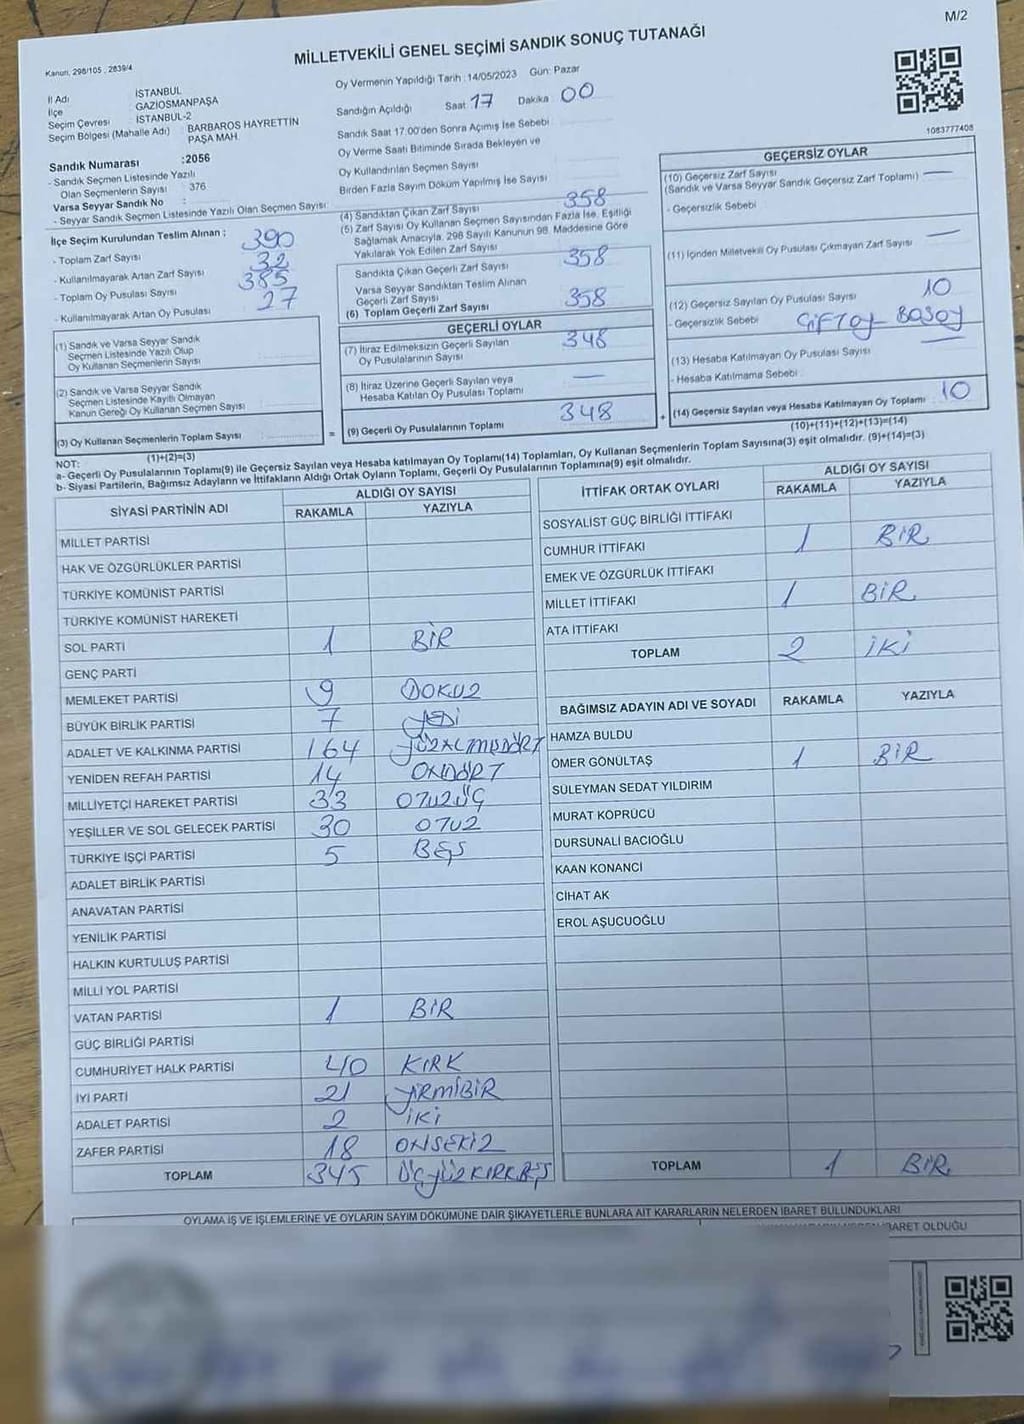 M/2
MİLLETVEKİLİ GENEL SEÇİMİ SANDIK SONUÇ TUTANAĞI
Kanun, 298/105 , 2839/4
İl Adı İSTANBUL
İlçe GAZİOSMANPAŞA
Seçim Çevresi : İSTANBUL-2
Seçim Bölgesi (Mahalle Adı) : BARBAROS HAYRETTİN
PAŞA MAH.
Sandık Numarası :2056
- Sandık Seçmen Listesinde Yazılı
Olan Seçmenlerin Sayısı : 376
Varsa Seyyar Sandık No :
- Seyyar Sandık Seçmen Listesinde Yazılı Olan Seçmen Sayısı:
Oy Vermenin Yapıldığı Tarih : 14/05/2023 Gün: Pazar
Sandığın Açıldığı Saat 17 Dakika 00
Sandık Saat 17.00'den Sonra Açımış İse Sebebi
Oy Verme Saati Bitiminde Sırada Bekleyen ve
Oy Kullandırılan Seçmen Sayısı
Birden Fazla Sayım Döküm Yapılmış İse Sayısı
1083777408
İlçe Seçim Kurulundan Teslim Alınan :
- Toplam Zarf Sayısı 390
- Kullanılmayarak Artan Zarf Sayısı 32
- Toplam Oy Pusulası Sayısı 385
- Kullanılmayarak Artan Oy Pusulası 27
(1) Sandık ve Varsa Seyyar Sandık
Seçmen Listesinde Yazılı Olup
Oy Kullanan Seçmenlerin Sayısı
(2) Sandık ve Varsa Seyyar Sandık
Seçmen Listesinde Kayıtlı Olmayan
Kanun Gereği Oy Kullanan Seçmen Sayısı
(3) Oy Kullanan Seçmenlerin Toplam Sayısı
(1)+(2)=(3)
(4) Sandıktan Çıkan Zarf Sayısı 358
(5) Zarf Sayısı Oy Kullanan Seçmen Sayısından Fazla İse, Eşitliği
Sağlamak Amacıyla, 298 Sayılı Kanunun 98. Maddesine Göre
Yakılarak Yok Edilen Zarf Sayısı
Sandıkta Çıkan Geçerli Zarf Sayısı 358
Varsa Seyyar Sandıktan Teslim Alınan
Geçerli Zarf Sayısı
(6) Toplam Geçerli Zarf Sayısı 358
GEÇERLİ OYLAR
(7) İtiraz Edilmeksizin Geçerli Sayılan
Oy Pusulalarının Sayısı 348
(8) İtiraz Üzerine Geçerli Sayılan veya
Hesaba Katılan Oy Pusulası Toplamı —
= (9) Geçerli Oy Pusulalarının Toplamı 348 +
GEÇERSİZ OYLAR
(10) Geçersiz Zarf Sayısı —
(Sandık ve Varsa Seyyar Sandık Geçersiz Zarf Toplamı)
- Geçersizlik Sebebi
(11) İçinden Milletvekili Oy Pusulası Çıkmayan Zarf Sayısı —
(12) Geçersiz Sayılan Oy Pusulası Sayısı 10
- Geçersizlik Sebebi ÇİFTOY BOŞOY
(13) Hesaba Katılmayan Oy Pusulası Sayısı —
- Hesaba Katılmama Sebebi
(14) Geçersiz Sayılan veya Hesaba Katılmayan Oy Toplamı 10
(10)+(11)+(12)+(13)=(14)
NOT:
a- Geçerli Oy Pusulalarının Toplamı(9) ile Geçersiz Sayılan veya Hesaba katılmayan Oy Toplamı(14) Toplamları, Oy Kullanan Seçmenlerin Toplam Sayısına(3) eşit olmalıdır. (9)+(14)=(3)
b- Siyasi Partilerin, Bağımsız Adayların ve İttifakların Aldığı Ortak Oyların Toplamı, Geçerli Oy Pusulalarının Toplamına(9) eşit olmalıdır.
SİYASİ PARTİNİN ADI ALDIĞI OY SAYISI
RAKAMLA YAZIYLA
MİLLET PARTİSİ
HAK VE ÖZGÜRLÜKLER PARTİSİ
TÜRKİYE KOMÜNİST PARTİSİ
TÜRKİYE KOMÜNİST HAREKETİ
SOL PARTİ 1 BİR
GENÇ PARTİ
MEMLEKET PARTİSİ 9 DOKUZ
BÜYÜK BİRLİK PARTİSİ 7 YEDİ
ADALET VE KALKINMA PARTİSİ 164 YÜZALTMIŞDÖRT
YENİDEN REFAH PARTİSİ 14 ONDÖRT
MİLLİYETÇİ HAREKET PARTİSİ 33 OTUZÜÇ
YEŞİLLER VE SOL GELECEK PARTİSİ 30 OTUZ
TÜRKİYE İŞÇİ PARTİSİ 5 BEŞ
ADALET BİRLİK PARTİSİ
ANAVATAN PARTİSİ
YENİLİK PARTİSİ
HALKIN KURTULUŞ PARTİSİ
MİLLİ YOL PARTİSİ
VATAN PARTİSİ 1 BİR
GÜÇ BİRLİĞİ PARTİSİ
CUMHURİYET HALK PARTİSİ 40 KIRK
İYİ PARTİ 21 YİRMİBİR
ADALET PARTİSİ 2 İKİ
ZAFER PARTİSİ 18 ONSEKİZ
TOPLAM 345 ÜÇYÜZKIRKBEŞ
İTTİFAK ORTAK OYLARI ALDIĞI OY SAYISI
RAKAMLA YAZIYLA
SOSYALİST GÜÇ BİRLİĞİ İTTİFAKI
CUMHUR İTTİFAKI 1 BİR
EMEK VE ÖZGÜRLÜK İTTİFAKI
MİLLET İTTİFAKI 1 BİR
ATA İTTİFAKI
TOPLAM 2 İKİ
BAĞIMSIZ ADAYIN ADI VE SOYADI RAKAMLA YAZIYLA
HAMZA BULDU
ÖMER GÖNÜLTAŞ 1 BİR
SÜLEYMAN SEDAT YILDIRIM
MURAT KÖPRÜCÜ
DURSUNALİ BACIOĞLU
KAAN KONANCİ
CİHAT AK
EROL AŞUCUOĞLU
TOPLAM 1 BİR
OYLAMA İŞ VE İŞLEMLERİNE VE OYLARIN SAYIM DÖKÜMÜNE DAİR ŞİKAYETLERLE BUNLARA AİT KARARLARIN NELERDEN İBARET BULUNDUKLARI
İBARET OLDUĞU